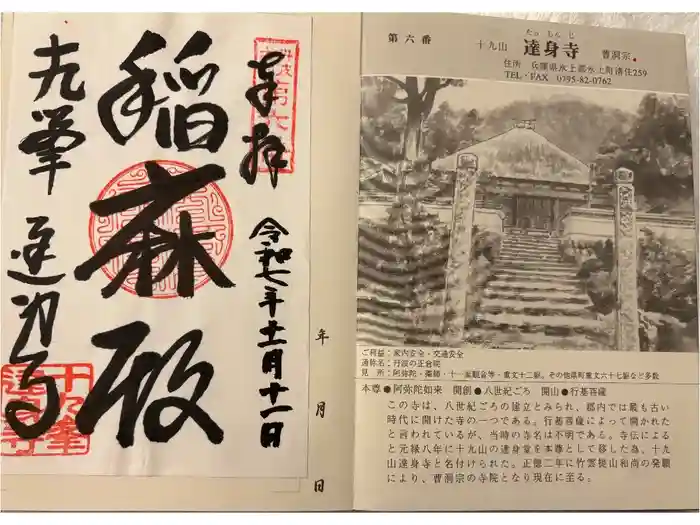 奉拝
令和七年十二月十一日
稲麻殿
十九峯
達身寺
年 月 日
第六番
十九山 達身寺 曹洞宗
たっしんじ
住所 兵庫県氷上郡氷上町清住259
TEL・FAX 0795-82-0762
ご利益:家内安全・交通安全
通称名:丹波の正倉院
見 所:阿弥陀・薬師・十一面観音等・重文十二躯。その他県町重文六十七躯など多数
本尊●阿弥陀如来 開創●八世紀ごろ 開山●行基菩薩
この寺は、八世紀ごろの建立とみられ、郡内では最も古い
時代に開けた寺の一つである。行基菩薩によって開かれた
と言われているが、当時の寺名は不明である。寺伝による
と元禄八年に十九山の達身堂を本尊として移した為、十九
山達身寺と名付けられた。正徳二年に竹雲提山和尚の発願
により、曹洞宗の寺院となり現在に至る。